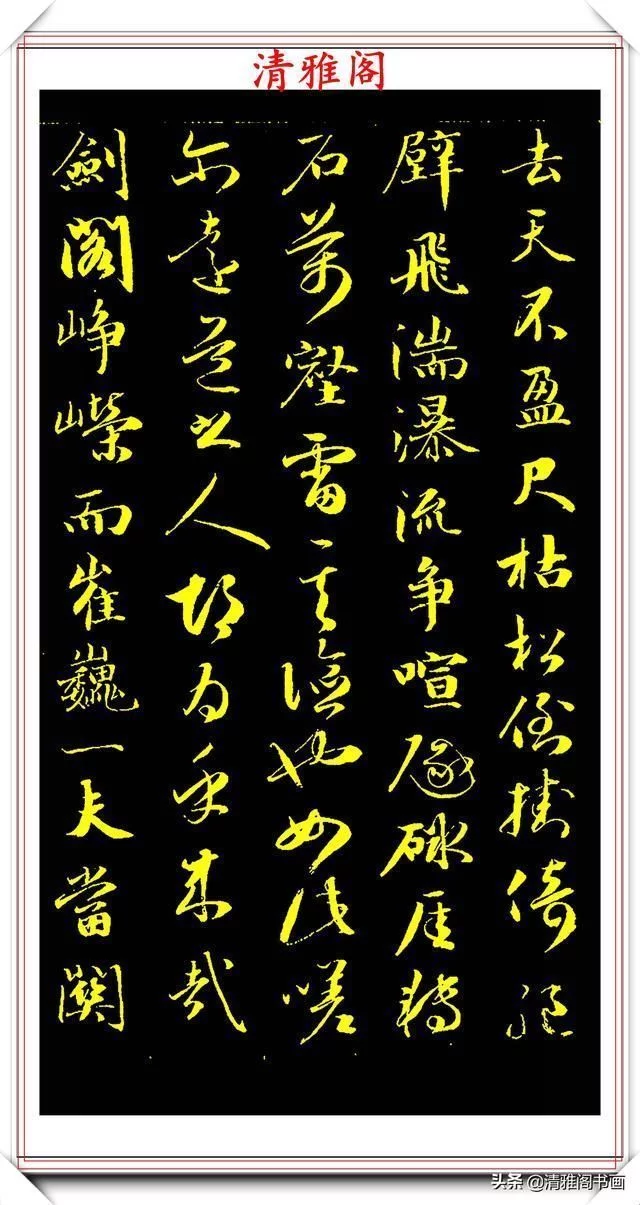 清雅阁
去天不盈尺枯松倒挂倚絕
壁飛湍瀑流争喧豗砯厓轉
石萬壑雷其險也如此嗟
尔遠道之人胡為乎来哉
劍閣峥嶸而崔巍一夫當關
头条 @清雅阁书画